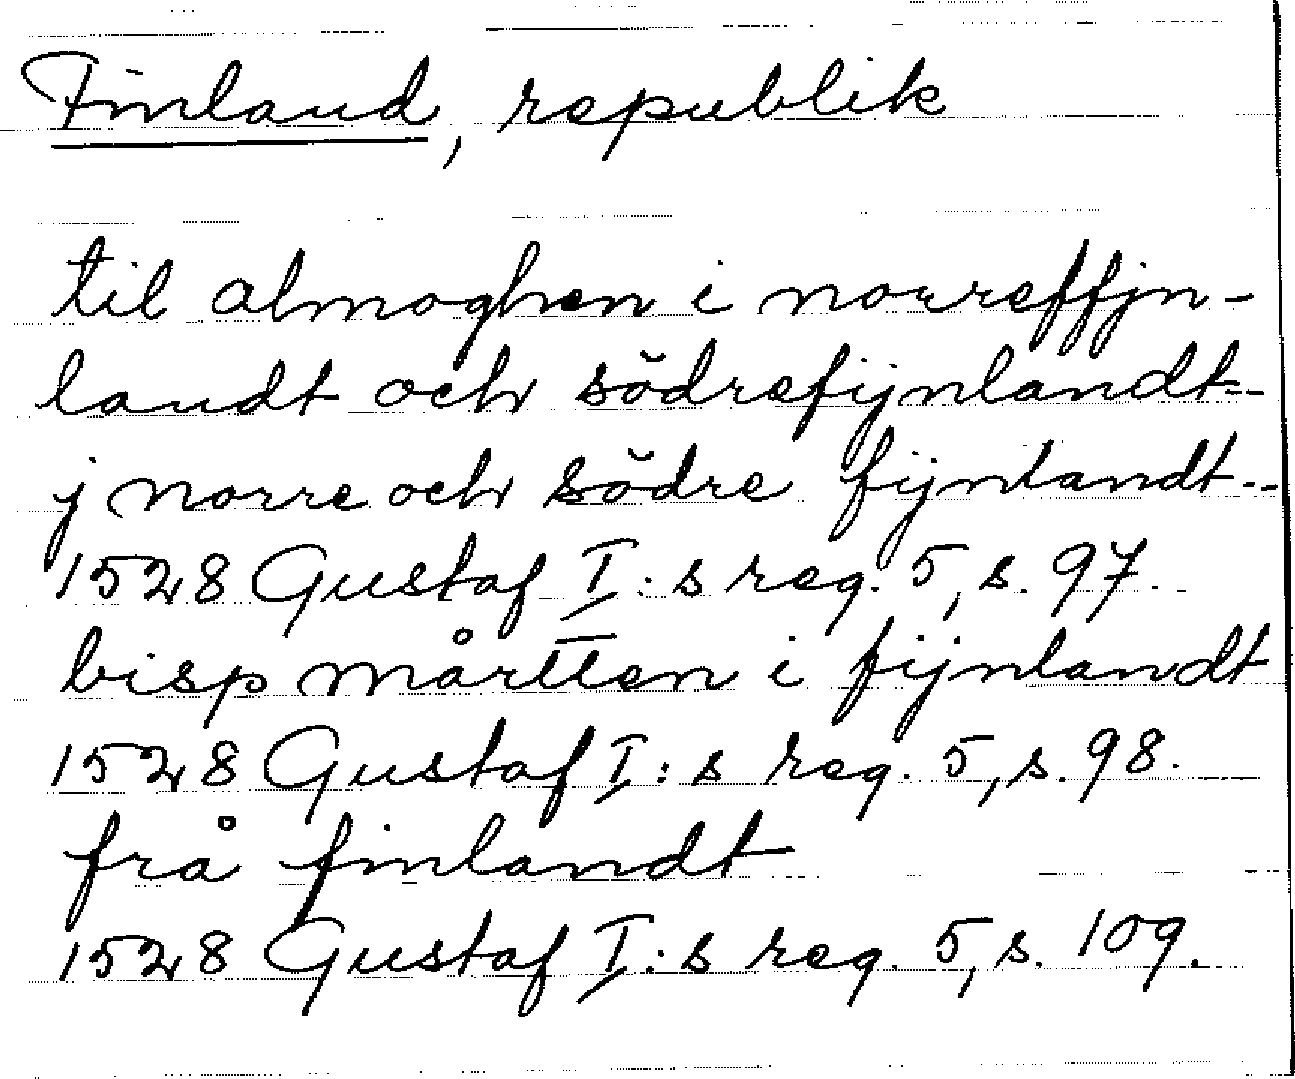 Finland, republik
til almoghen i norreffjn-
landt och södrefijnlandt--
j norre och södre fijnlandt--
1528 Gustaf I:s reg. 5, s. 97.
bisp mårtten i fijnlandt
1528 Gustaf I:s reg. 5, s. 98.
frå finlandt
1528 Gustaf I:s reg. 5, s. 109.